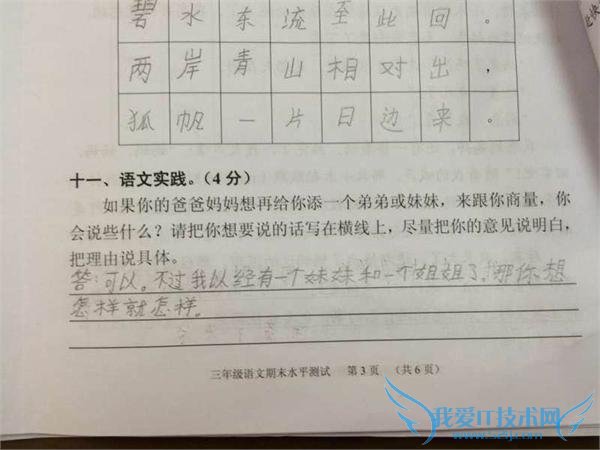 碧水东流至此回。
两岸青山相对出，
狐帆一片日边来。
十一、语文实践。(4分)
如果你的爸爸妈妈想再给你添一个弟弟或妹妹，来跟你商量，你
会说些什么？请把你想要说的话写在横线上，尽量把你的意见说明白，
把理由说具体。
答:可以。不过我以经有一个妹妹和一个姐姐了。那你想
怎样就怎样。
三年级语文期末水平测试 第3页 (共6页)
我爱IT技术网